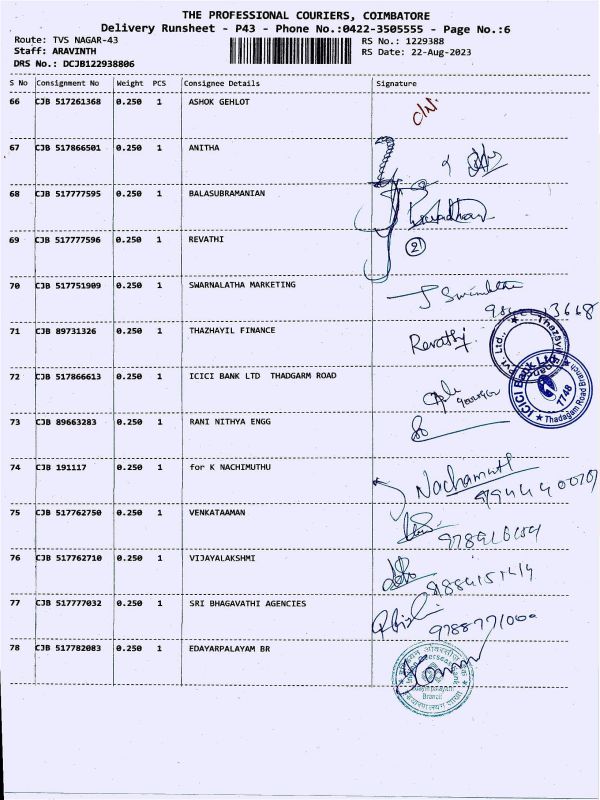 THE PROFESSIONAL COURIERS, COIMBATORE
Delivery Runsheet - P43 - Phone No.:0422-3505555 - Page No.:6
Route: TVS NAGAR-43 RS No.: 1229388
Staff: ARAVINTH RS Date: 22-Aug-2023
DRS No.: DCJB122938806
S No Consignment No Weight PCS Consignee Details Signature
66 CJB 517261368 0.250 1 ASHOK GEHLOT
67 CJB 517866501 0.250 1 ANITHA
68 CJB 517777595 0.250 1 BALASUBRAMANIAN
69 CJB 517777596 0.250 1 REVATHI 21
70 CJB 517751909 0.250 1 SWARNALATHA MARKETING
71 CJB 89731326 0.250 1 THAZHAYIL FINANCE Revathi
Pvt. Ltd.,
72 CJB 517866613 0.250 1 ICICI BANK LTD THADGARM ROAD
ICICI Bank Ltd
1748
Thadagam Road Branch
73 CJB 89663283 0.250 1 RANI NITHYA ENGG
74 CJB 191117 0.250 1 for K NACHIMUTHU Nachamuth
75 CJB 517762750 0.250 1 VENKATAAMAN
76 CJB 517762710 0.250 1 VIJAYALAKSHMI
77 CJB 517777032 0.250 1 SRI BHAGAVATHI AGENCIES
78 CJB 517782083 0.250 1 EDAYARPALAYAM BR
Branch